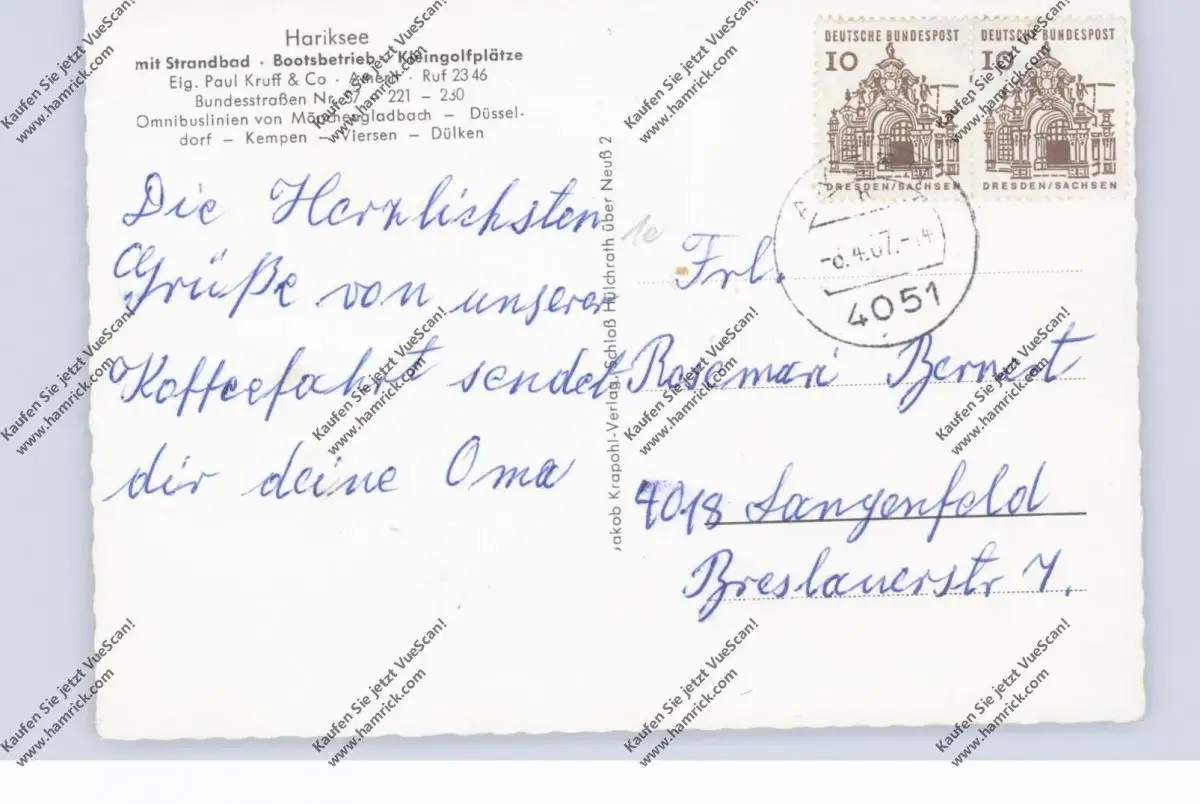 Hariksee
mit Strandbad · Bootsbetrieb · Kleingolfplätze
Eig. Paul Kruff & Co · Amern · Ruf 2346
Bundesstraßen Nr. 57 – 221 – 230
Omnibuslinien von Mönchengladbach – Düssel-
dorf – Kempen – Viersen – Dülken
Die Herzlichsten
Grüße von unserer
Koffeefahrt sendet
dir deine Oma
Jakob Krapohl-Verlag, Schloß Hülchrath über Neuß 2
DEUTSCHE BUNDESPOST
10
DRESDEN/SACHSEN
DEUTSCHE BUNDESPOST
10
DRESDEN/SACHSEN
-6.4.67.-14
4051
1e
Frl.
Rosemari Bernat
4018 Langenfeld
Breslauerstr 7.
Kaufen Sie jetzt VueScan!
www.hamrick.com